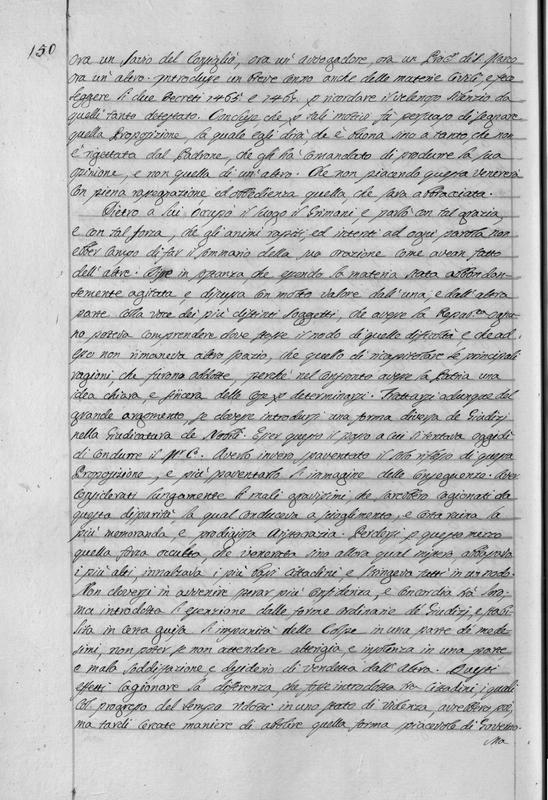 150
ora un Savio del Consiglio, ora un' avvogadore, ora un Proc.r di S. Marco
ora un' altro. Introdusse un breve cenno anche delle materie Civili, e fece
leggere li due Decreti 1465 e 1461 ricordare il silenzio da
quelli tanto detestato. Concluse che p tali motivi fu persuaso di segnare
quella Proposizione la quale egli dirà, che è buona sino a tanto che non
è rigettata dal Padrone, che gli hà comandato di produrre la sua
opinione, e non quella di un' altro. Che non piacendo questa venererà
con piena rassegnazione ed obbedienza quella, che sarà abbracciata.
Dietro a lui occupò il luogo il Grimani e parlò con tal grazia,
e con tal forza, che gli animi rapiti, ed intenti ad ogni parola non
ebber campo di far il sommario della sua orazione come avean fatto
dell' altre. Disse in sostanza, che essendo la materia stata abbondan-
temente agitata e discussa con molto valore dall' una, e dall' altra
parte colla voce dei più distinti soggetti, che avesse la Repub.ca ogn'u-
no poteva comprendere dove fosse il nodo di quelle difficoltà e che ad
esso non rimaneva altro spazio, che quello di ricapitolare le principali
ragioni, che furono addotte, perchè nel confronto avesse la Patria una
idea chiara, e sincera delle cose p determinarsi. Trattarsi adunque del
grande argomento, se dovere introdursi una forma diversa de Giudizj
nella Giudicatura de Nobili. Esser questo il passo a cui si tentava oggidì
di condurre il M.C. Averlo invero paventato il solo riflesso di questa
Proposizione, e più paventarlo l' immagine delle conseguenze. Dover
considerarsi lungamente li mali gravissimi, che sarebbero cagionati da
questa disparità, la qual conduceva a scioglimento, e certa ruina la
più memoranda e prodigiosa Aristocrazia. Perdersi p questo mezzo
quella forza occulta, che inosservata sino allora qual misura abbassava
i più alti, innalzava i più bassi Cittadini e stringeva tutti in un nodo.
Non doversi in avvenire sperar più confidenza, e concordia frà loro,
ma introdotta l' esenzione dalle forme ordinarie de Giudizj, e stabi-
lita in certa guisa l' impunità delle Colpe in una parte de mede-
simi, non poter se non attendere alterigia e insolenza in una parte
e mala soddisfazione e desiderio di vendetta dall' Altra. Questi
effetti cagionare la differenza, che fosse introdotta tra Cittadini, i quali
col progresso del tempo ridotti in uno stato di violenza, avrebbero poi,
ma tardi cercate maniere di abolire quella forma piacevole di Governo.
Ma